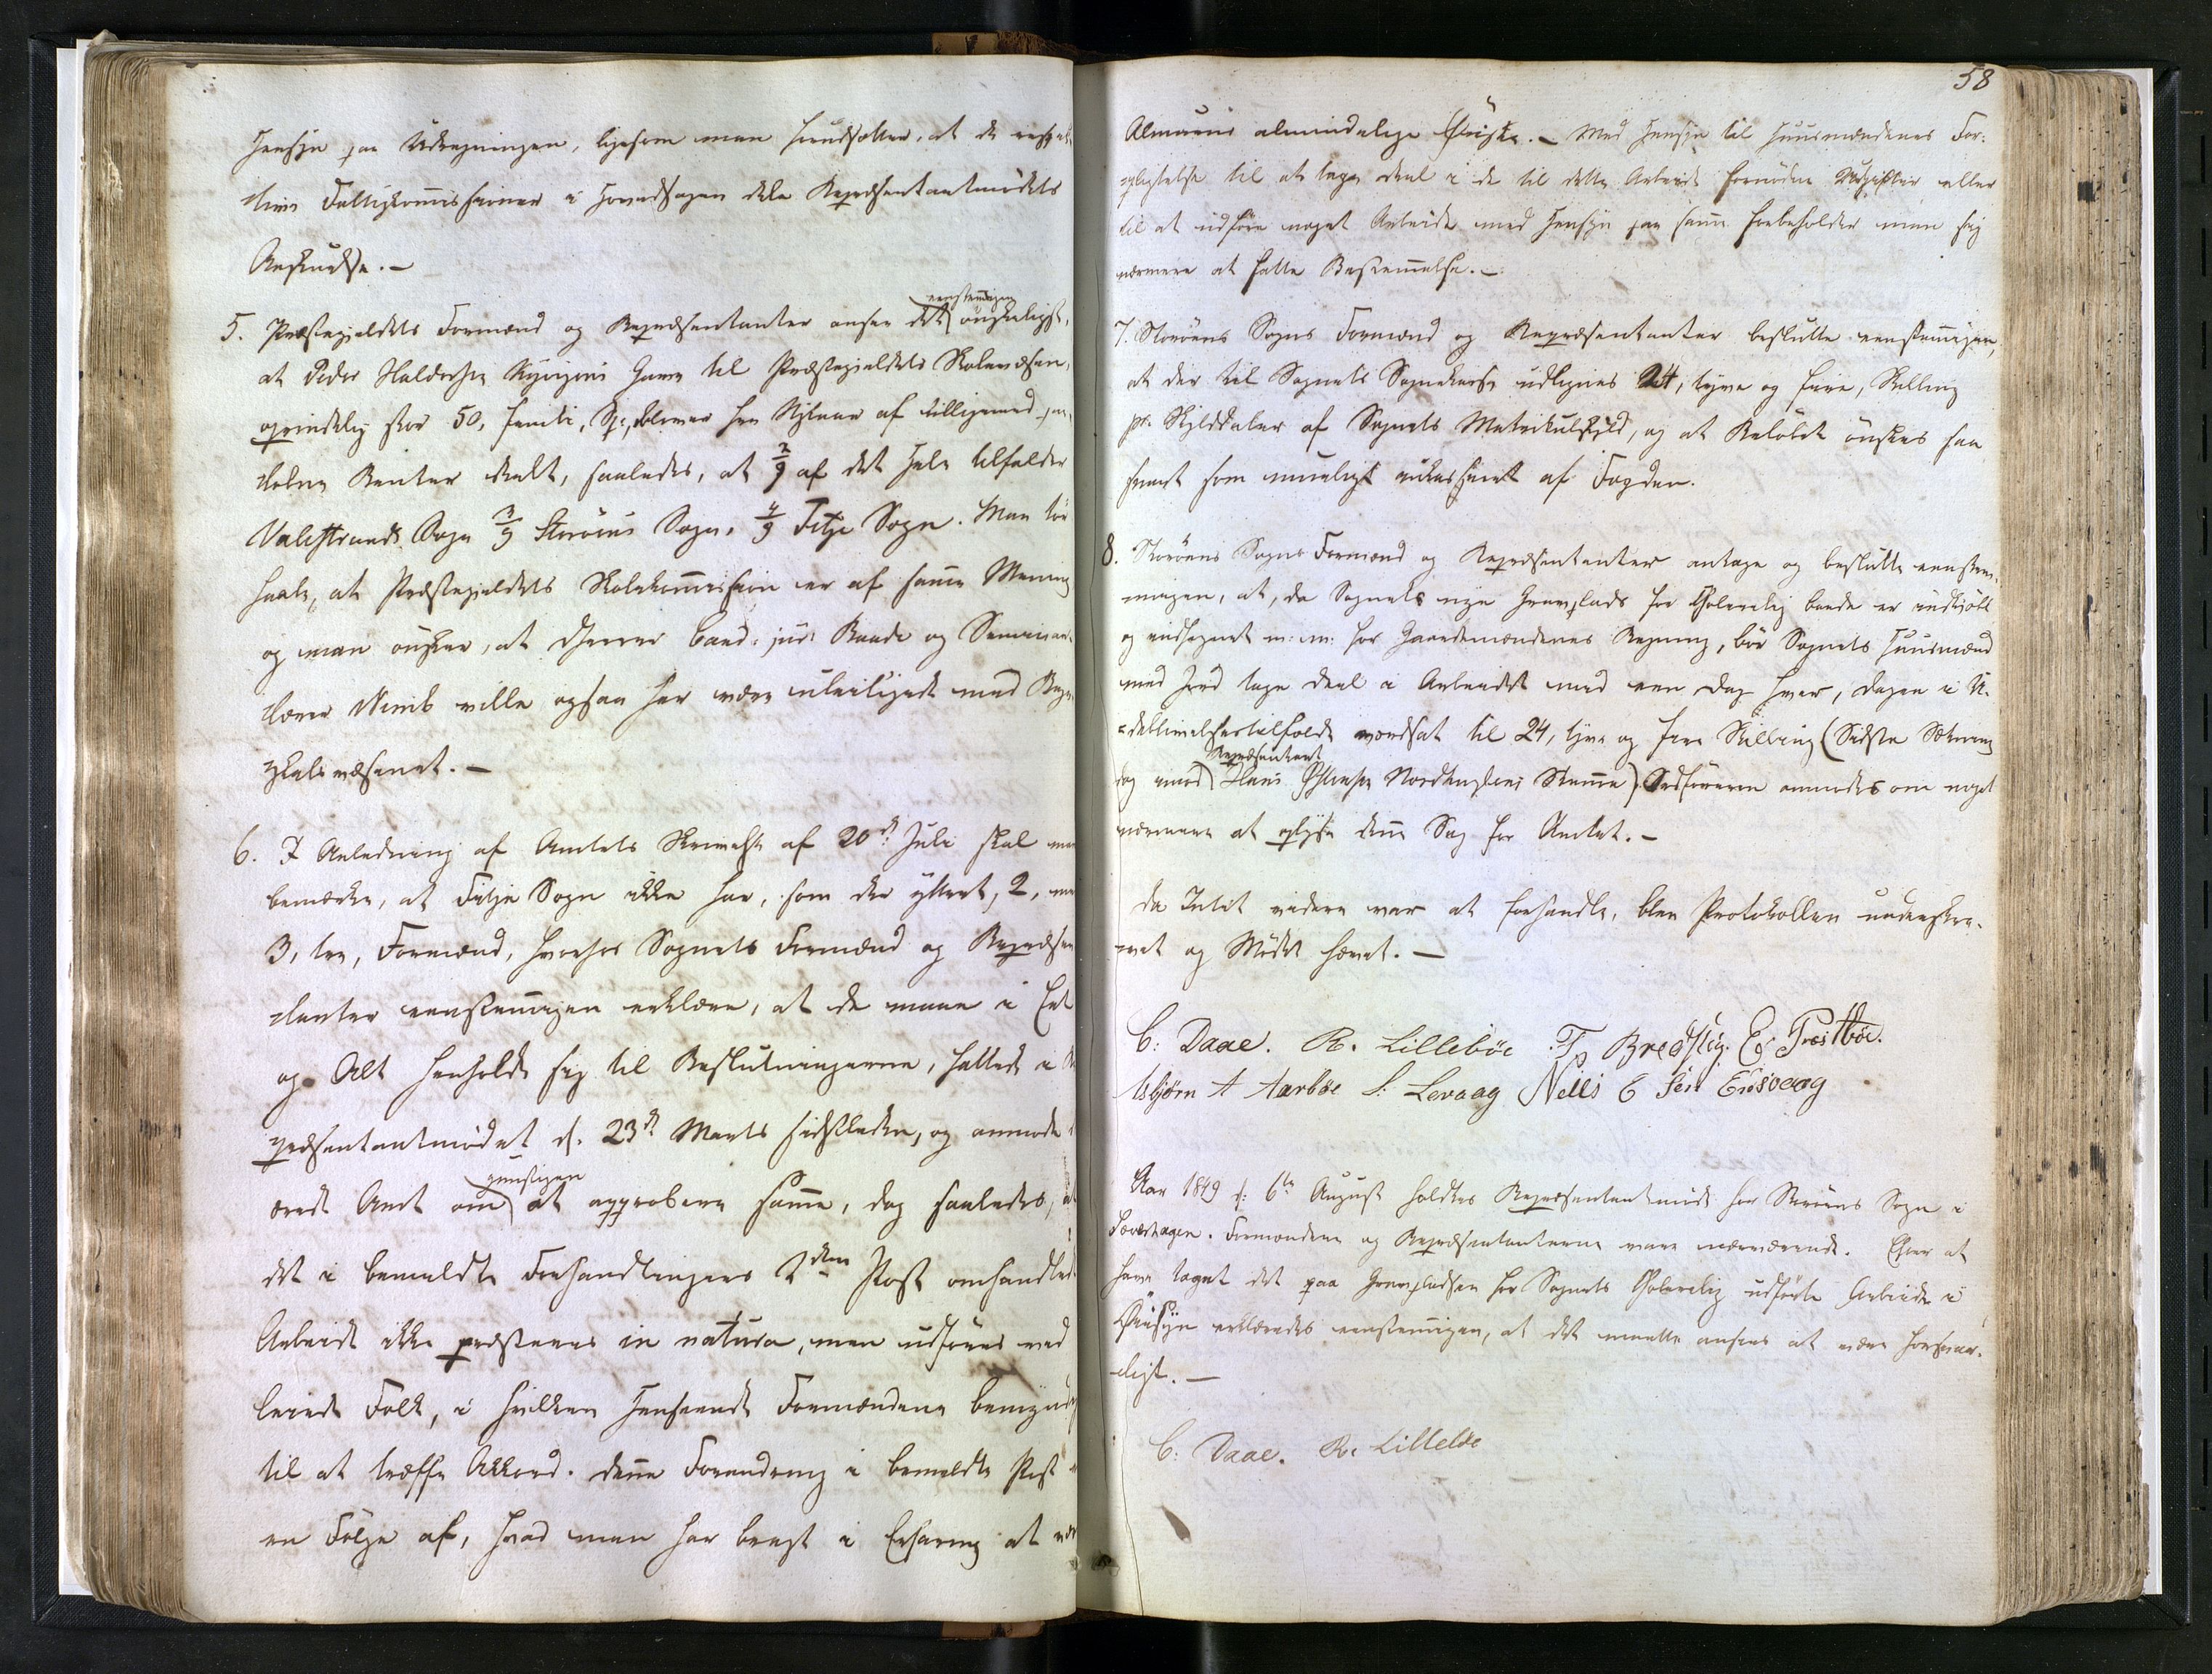 Hensyn paa Udregningen, ligesom man forudsætter, at de respek-
tive Fattigkommissioner i Hovedsagen dele Repræsentantmødets
Anskuelse. —
5. Præstegjeldets Formænd og Repræsentanter anser det eenstemmigen ønskeligst,
at Peder Haldorsen Gave til Præstegjeldets Skolevæsen,
oprindelig stor 50, femti, Spdlr. tilligemed paa-
løbne Renter deelt, saaledes, at 2/9 af det Hele tilfalder
Valestrands Sogn 3/9 Storøens Sogn, 4/9 Fitje Sogn. Man tør
haabe, at Præstegjeldets Skolekommission er af samme Mening
og man ønsker, at Herrer Cand: jur: Baade og Seminar-
lærer ville ogsaa her være
væsenet. —
6. I Anledning af Amtets Skrivelse af 20de Juli skal man
bemærke, at Fitje Sogn ikke har, som der yttret, 2, men
3, tre, Formænd, hvorhos Sognets Formænd og Repræsen-
tanter eenstemmigen erklære, at de maae i Eet
og Alt henholde sig til Beslutningerne, fattede i Re-
præsentantmødet d. 23de Marts sidstleden, og anmode
ærede Amt om gunstigen at approbere samme, dog saaledes, at
det i bemeldte Forhandlingers 2den Post omhandlede
Arbeide ikke præsteres in natura, men udføres ved
leiede Folk, i hvilken Henseende Formændene bemyndiges
til at træffe Akkord. Denne Forandring i bemeldte Post er
en Følge af, hvad man har bragt i Erfaring at være
58
Almuens almindelige Ønske. — Med Hensyn til Huusmændenes For-
pligtelse til at tage Deel i de til dette Arbeide fornødne Udgifter eller
til at udføre noget Arbeide med Hensyn paa samme forbeholder man sig
nærmere at fatte Bestemmelse. —
7. Storøens Sogns Formænd og Repræsentanter beslutte eenstemmigen,
at der til Sognets Sognekasse udlignes 24, tyve og fire, Skilling
pr. Skylddaler af Sognets Matrikulskyld, og at Beløbet ønskes saa
snart som mueligt inkasseret af Fogden.
8. Storøens Sogns Formænd og Repræsentanter antage og beslutte eenstem-
migen, at, da Sognets nye Gravplads for Choleralig baade er indkjøbt
og indhegnet m: m: for Gaardmændenes Regning, bør Sognets Huusmænd
med Jord tage Deel i Arbeidet med een Dag hver, Dagen i U-
deblivelsestilfælde værdsat til 24, tyve og fire Skilling (Sidste Sætning
dog imod Repræsentant Hans Østensen Nordhuglens Stemme). Ordføreren anmodes om noget
nærmere at oplyse denne Sag for Amtet. —
Da Intet videre var at forhandle, blev Protokollen underskre-
vet og Mødet hævet. —
C: Daae. R. Lillebøe T. Bredsteg. E. Træstbøe.
Asbjørn A Aarbøe L: Levaag Nells E Sen Eidsvaag
Aar 1849 d: 6te August holdtes Repræsentantmøde for Storøens Sogn i
Lovershagen. Formændene og Repræsentanterne vare nærværende. Efter at
have taget det paa Gravpladsen for Sognets Choleralig udførte Arbeide i
Øiesyn erklæredes eenstemmigen, at det maatte ansees at være forsvar-
ligt. —
C: Daae. R. Lillebøe